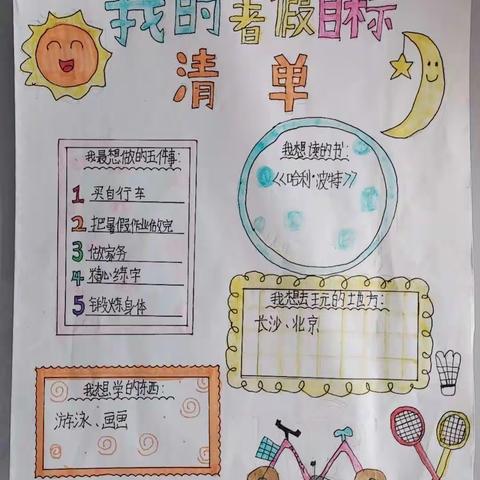 我的暑假目标
清单
我最想做的五件事:
1 买自行车
2 把暑假作业做完
3 做家务
4 精心练字
5 锻炼身体
我想读的书:
《哈利·波特》
我想去玩的地方:
长沙、北京
我想学的东西:
游泳、画画